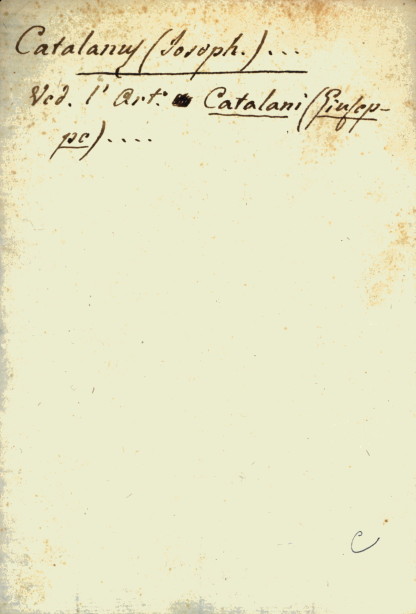 Catalanus (Joseph.)...
Ved. l' Art.° Catalani (Giusep-
pe)....
C